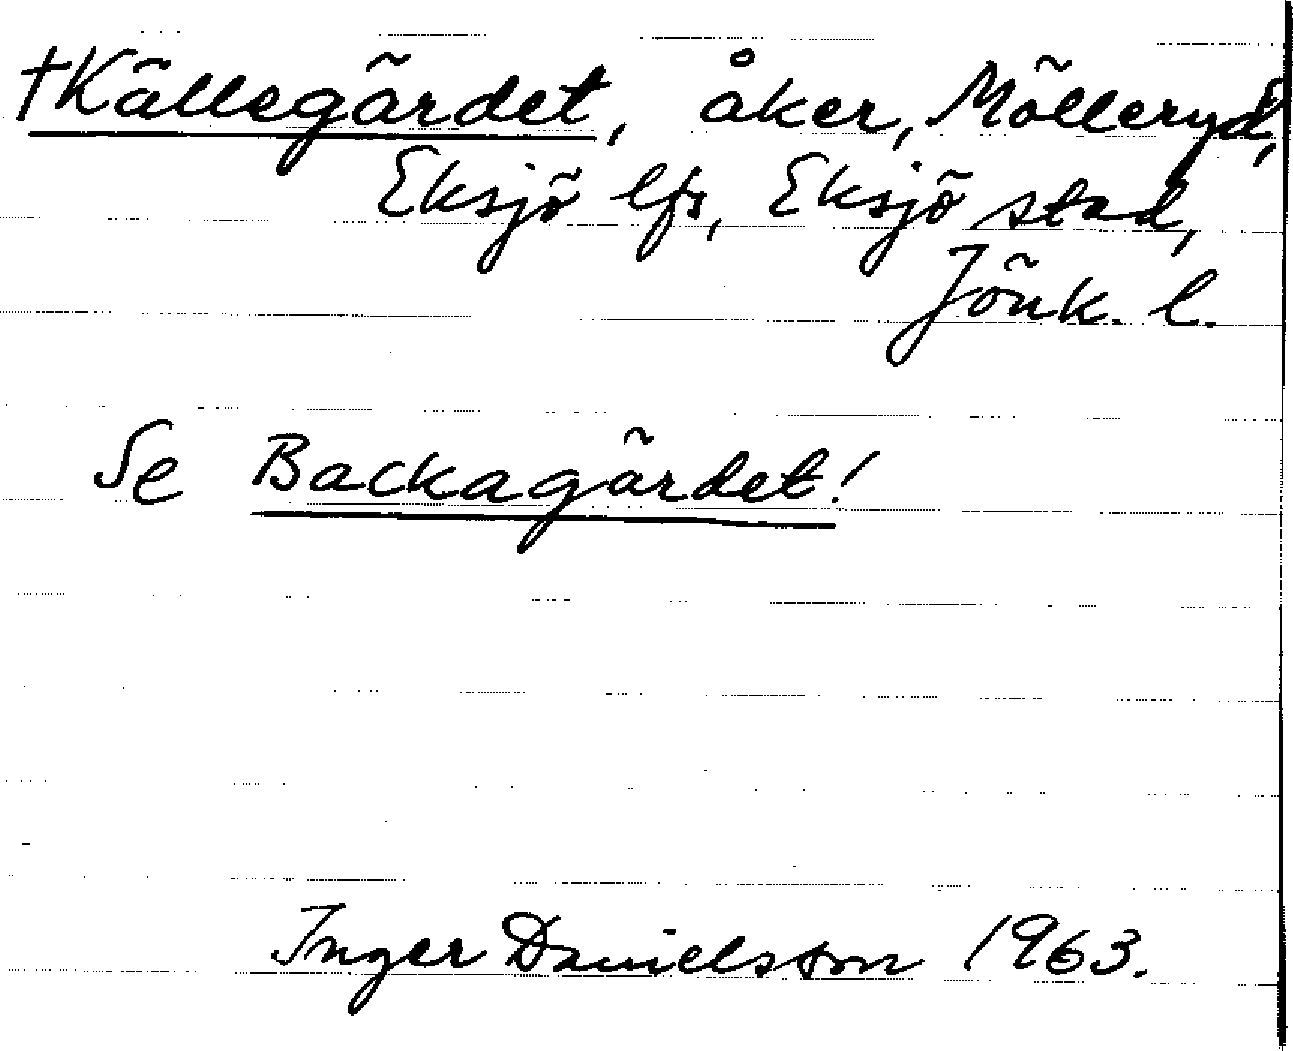 †Källegärdet, åker, Mölleryd,
Eksjö lfs, Eksjö stad,
Jönk. l.
Se Backagärdet!
Inger Danielsson 1963.